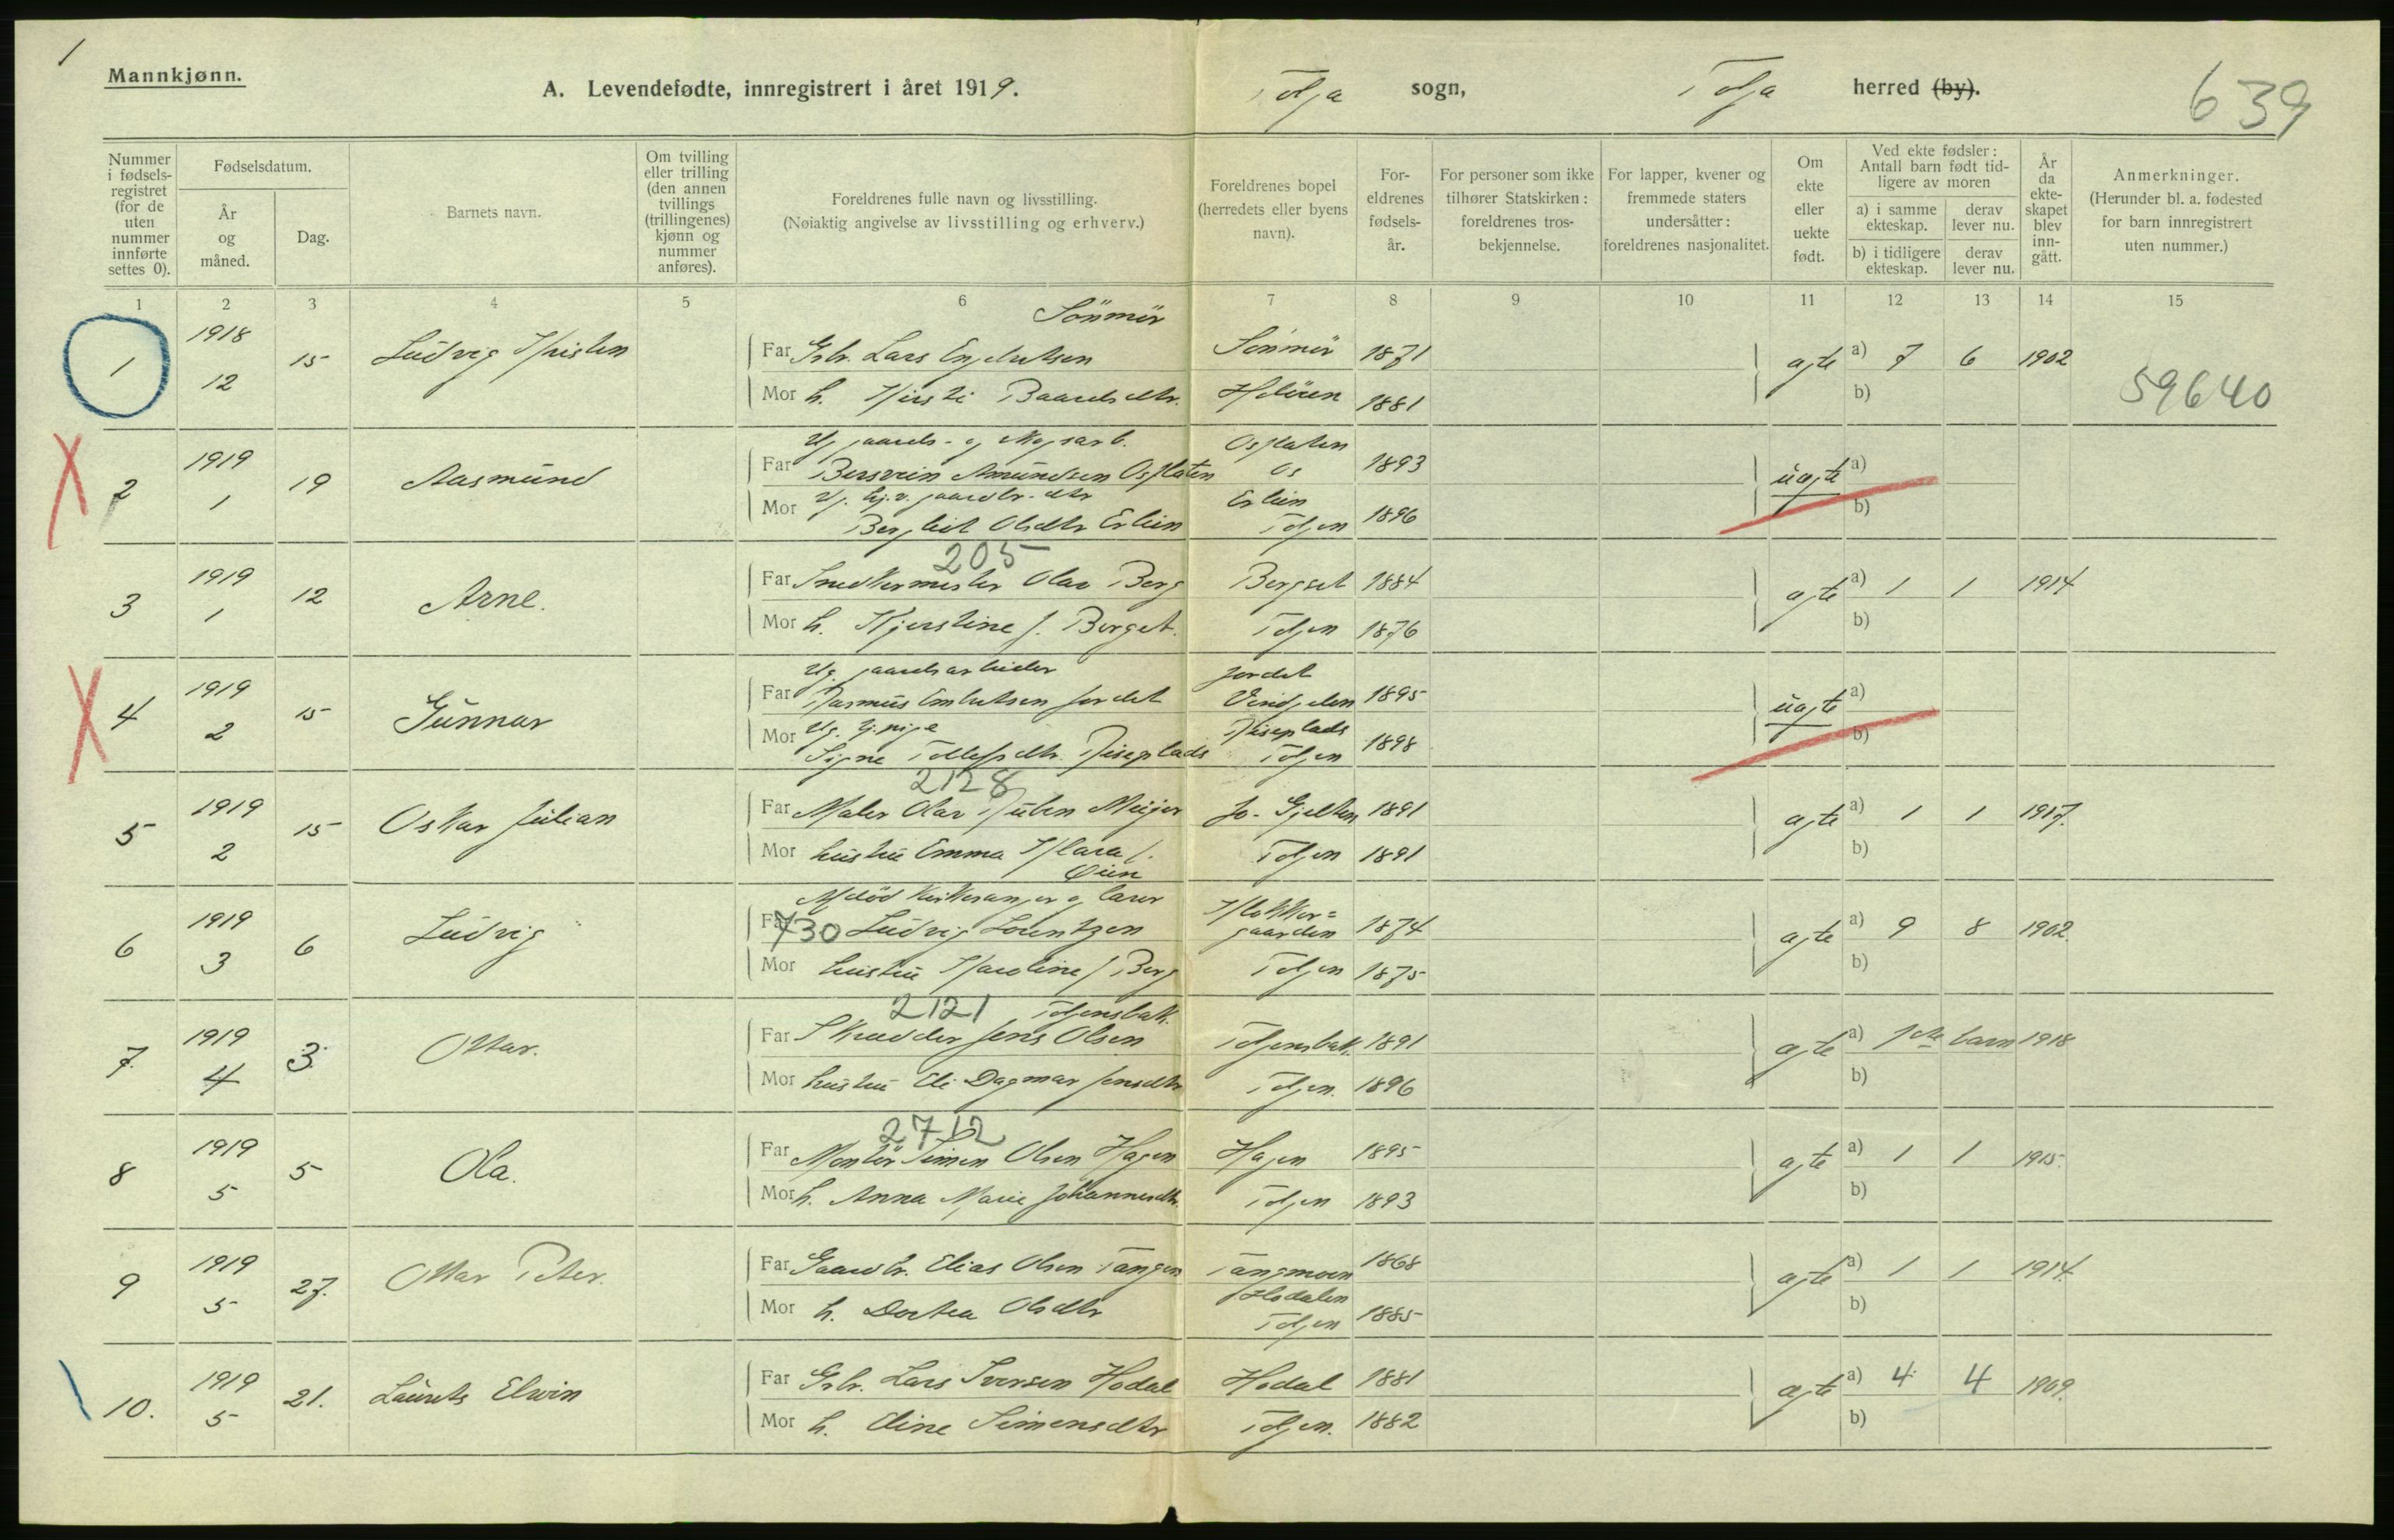 1
Mannkjønn.
A. Levendefødte, innregistrert i året 1919.
Tolga sogn,
Tolga herred (by).
639
Nummer i fødsels-registret (for de uten nummer innførte settes 0).
Fødselsdatum.
År og måned.
Dag.
Barnets navn.
Om tvilling eller trilling (den annen tvillings (trillingenes) kjønn og nummer anføres).
Foreldrenes fulle navn og livsstilling.
(Nøiaktig angivelse av livsstilling og erhverv.)
Foreldrenes bopel (herredets eller byens navn).
For-eldrenes fødsels-år.
For personer som ikke tilhører Statskirken: foreldrenes tros-bekjennelse.
For lapper, kvener og fremmede staters undersåtter: foreldrenes nasjonalitet.
Om ekte eller uekte født.
Ved ekte fødsler: Antall barn født tid-ligere av moren
a) i samme ekteskap.
derav lever nu.
b) i tidligere ekteskap.
derav lever nu.
År da ekte-skapet blev inn-gått.
Anmerkninger.
(Herunder bl. a. fødested for barn innregistrert uten nummer.)
1 2 3 4 5 6 7 8 9 10 11 12 13 14 15
Sönmör
1 1918 12 15 Ludvig Kristen
Far Grbr. Lars Engebretsen Sönmör 1871
Mor h. Kirsti Baardsdtr. Holöien 1881
ægte a) 7 6 1902
b)
59640
2 1919 1 19 Aasmund
Ug. gaards- og skogsarb. Osplaten
Far Bersvein Amundsen Osplaten Os 1893
Mor Ug. hj.v. gaardbr. dtr Erlien
Bergliot Olsdtr Erlien Tolgen 1896
uægte a)
b)
205
3 1919 1 12 Arne.
Far Snedkermester Olav Berg Bergset 1884
Mor h. Kjerstine f. Berget. Tolgen 1876
ægte a) 1 1 1914
b)
4 1919 2 15 Gunnar
Ug. gaardsarbeider Jordet
Far Rasmus Embretsen Jordet Vingelen 1895
Mor Ug. tj.pige
Signe Tollefsdtr. Tolgen 1898
uægte a)
b)
2128
5 1919 2 15 Oskar Julian
Far Maler Olav Ruben Meijer Jo-Gjelten 1891
Mor hustru Emma Klara f. Øien Tolgen 1891
ægte a) 1 1 1917.
b)
6 1919 3 6 Ludvig
Kirkesanger og lærer Klokker=
Far 730 Ludvig Lorentzen gaarden 1874
Mor hustru Karoline f Berg Tolgen 1875
ægte a) 9 8 1902
b)
2121 Tolgensbak.
7. 1919 4 3. Ottar.
Far Skrædder Jens Olsen Tolgensbak. 1891
Mor hustru Eli Dagmar Jensdtr Tolgen. 1896
ægte a) 1ste barn 1918
b)
2712
8 1919 5 5 Ola.
Far Montör Simen Olsen Hagen Hagen 1895
Mor h. Anna Marie Johannesdtr. Tolgen 1893
ægte a) 1 1 1915.
b)
9 1919 5 27. Ottar Peter.
Far Gaardbr. Elias Olsen Tangen Tangmoen 1868
Hodalen
Mor h. Dortea Olsdtr Tolgen 1885
ægte a) 1 1 1914.
b)
10. 1919 5 21. Laurits Elwin
Far Grbr. Lars Iversen Hodal Hodal 1881
Mor h. Eline Simensdtr Tolgen. 1882
ægte a) 4 4 1909.
b)